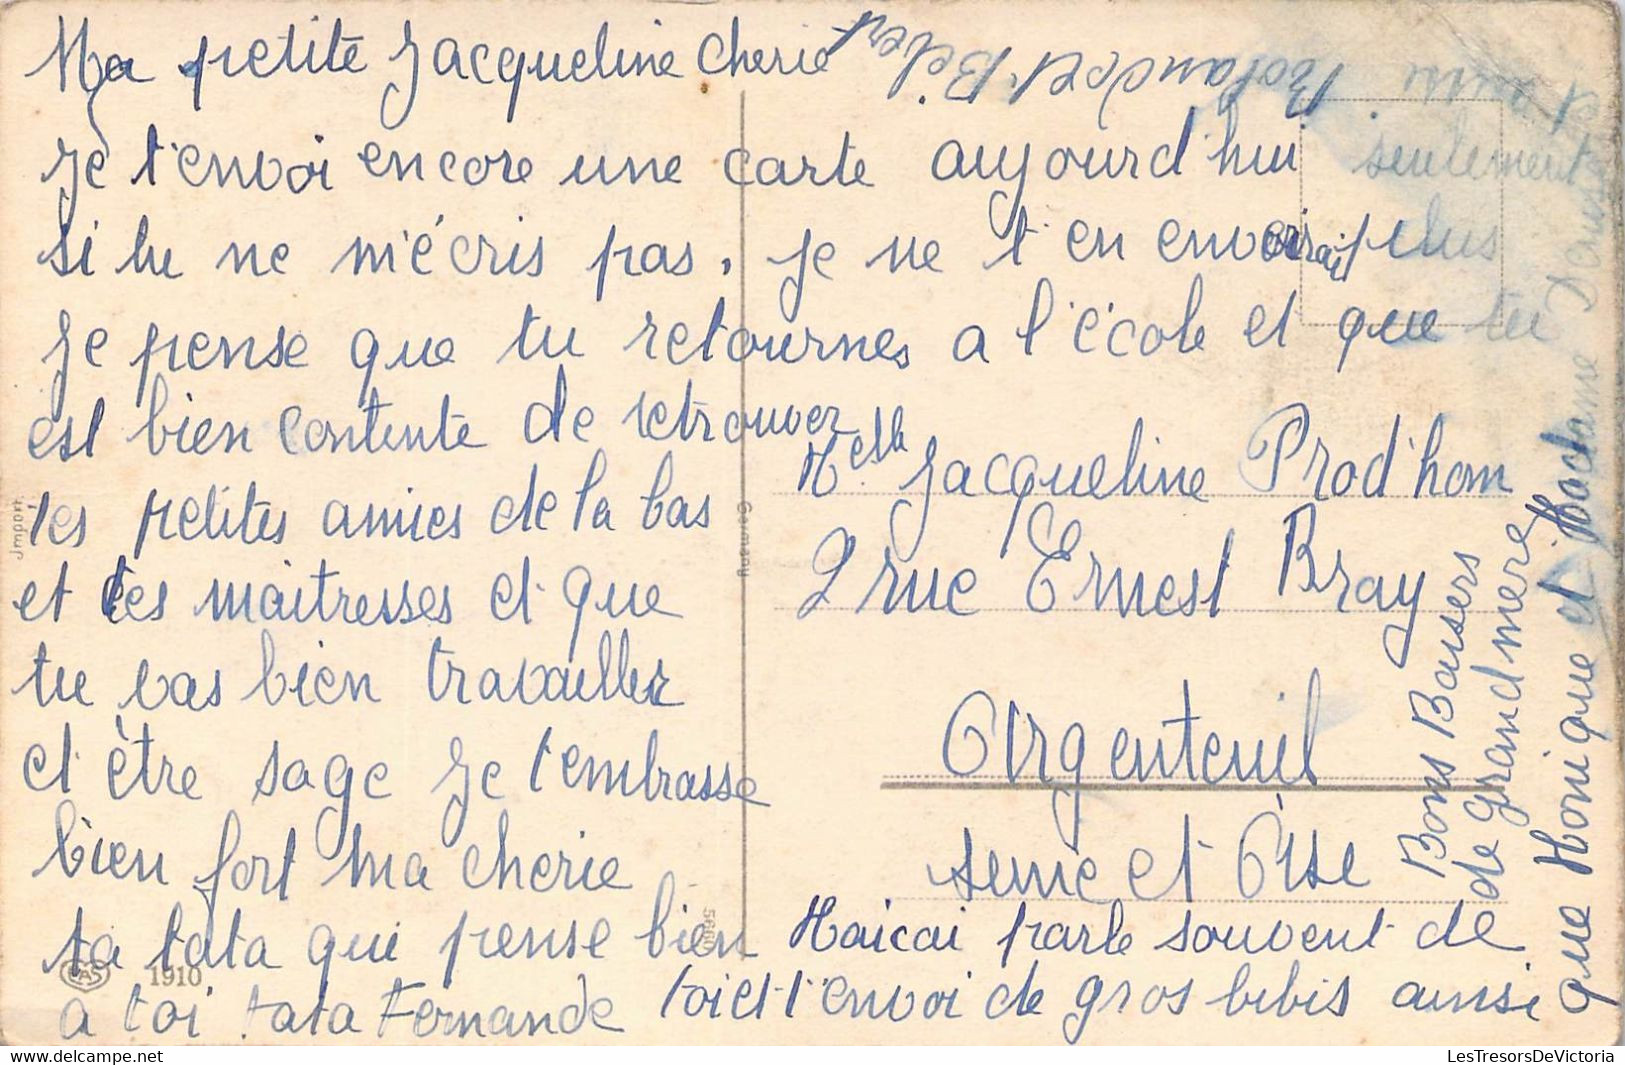 Ma petite Jacqueline cherie
Je t'envoi encore une carte aujourd'hui seulement
si tu ne m'écris pas. je ne t'en envoirai plus
Je pense que tu retournes a l'école et que tu
est bien contente de retrouver
tes petites amies de la bas
et tes maitresses et que
tu vas bien travailler
et être sage je t'embrasse
bien fort ma cherie
ta tata qui pense bien
a toi tata Fernande
Melle Jacqueline Prod'hom
2 rue Ernest Bray
Argenteuil
seine et Oise
Maicai parle souvent de
toi et t'envoi de gros bibis ainsi
que Monique et Madame Denise
et aussi Rolande et Bébert
Bons Baisers
de grand mère
Jmport
Germany
CAS
1910
LesTresorsDeVictoria